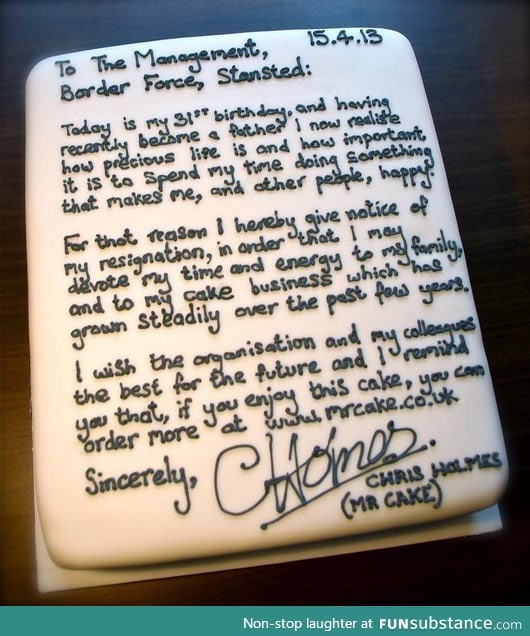 15.4.13
To The Management,
Border Force, Stansted:
Today is my 31st birthday, and having
recently become a father I now realise
how precious life is and how important
it is to spend my time doing something
that makes me, and other people, happy.
For that reason I hereby give notice of
my resignation, in order that I may
devote my time and energy to my family,
and to my cake business which has
grown steadily over the past few years.
I wish the organisation and my colleagues
the best for the future and I remind
you that, if you enjoy this cake, you can
order more at www.mrcake.co.uk
Sincerely,
CHolmes.
CHRIS HOLMES
(MR CAKE)
Non-stop laughter at FUNsubstance.com